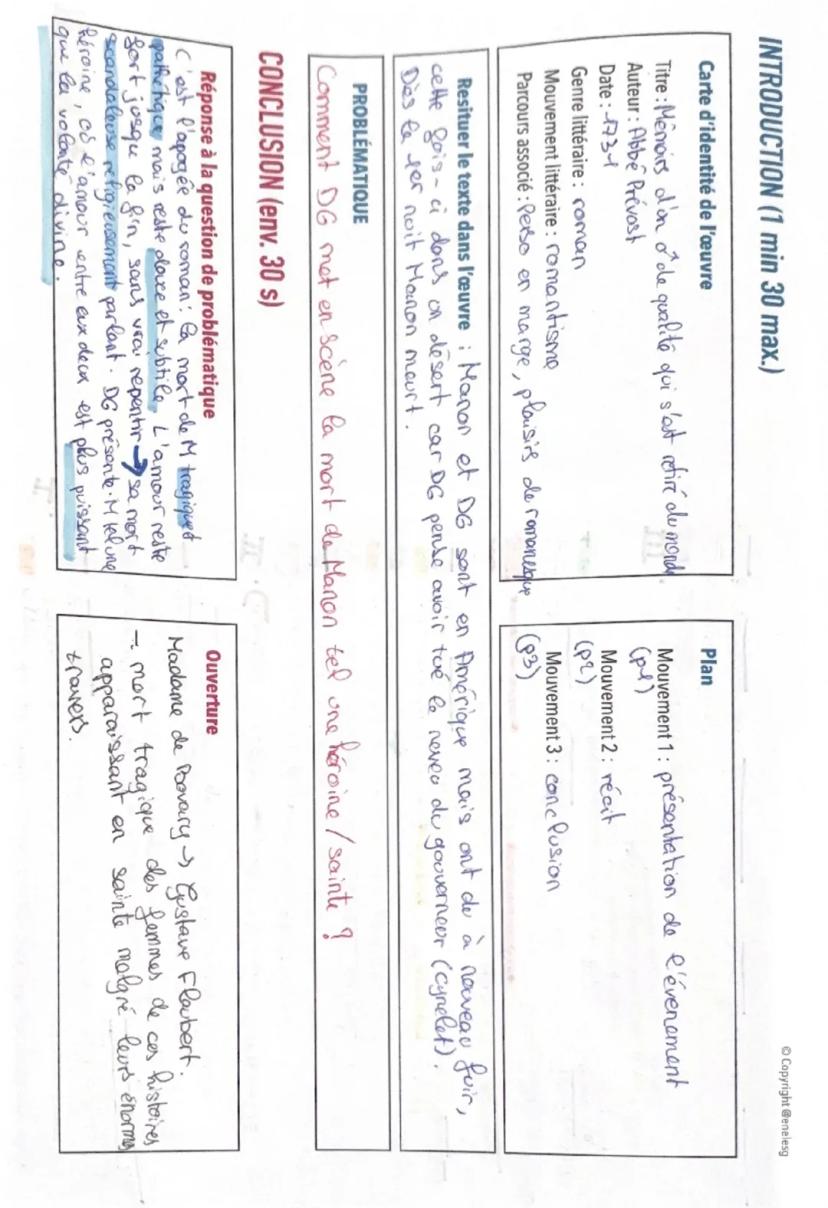 INTRODUCTION (1 min 30 max.)
© Copyright @enelesg
Carte d'identité de l'œuvre
Titre : Mémoirs d'un ♂ de qualité qui s'est retiré du monde
Auteur : Abbé Prévost
Date : 1731
Genre littéraire : roman
Mouvement littéraire : romantisme
Parcours associé : Perso en marge, plaisirs de romanesque
Plan
Mouvement 1 : présentation de l'évenement
(p1)
Mouvement 2 : récit
(p2)
Mouvement 3 : conclusion
(p3)
Resituer le texte dans l'œuvre : Manon et DG sont en Amérique mais ont du à nouveau fuir,
cette fois-ci dans un désert car DG pense avoir tué le neveu du gouverneur (cynelet).
Dès la 1er nuit Manon meurt.
PROBLÉMATIQUE
Comment DG met en scène la mort de Manon tel une héroïne/sainte ?
CONCLUSION (env. 30 s)
Réponse à la question de problématique
C'est l'apogée du roman : la mort de M tragique et
pathétique mais reste douce et subtile. L'amour reste
fort jusque la fin, sans vrai repentir → sa mort
scandaleuse religieusement parlant. DG présente M tel une
héroïne, où l'amour entre eux deux est plus puissant
que la volonté divine.
Ouverture
Madame de Bovary → Gustave Flaubert.
→ mort tragique des femmes de ces histoires
apparaissant en sainte malgré leurs énormes
travers.